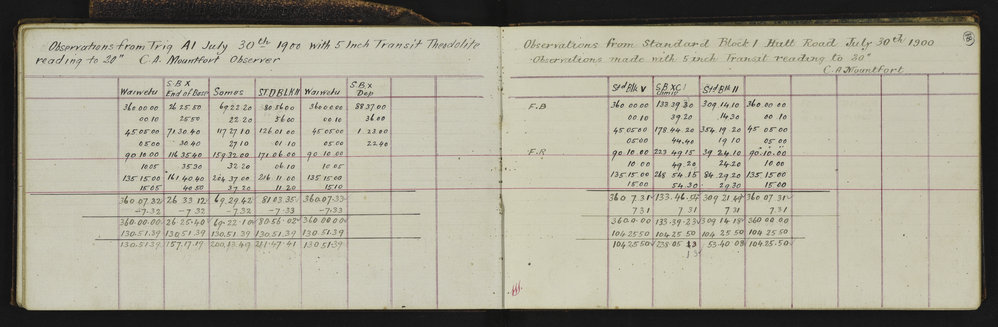 Observations from Trig A1 July 30th 1900 with 5 Inch Transit Theodolite
reading to 20" C.A. Mountfort Observer
Waiwetu S.B.X End of Base Somes STD BLK II Waiwetu S.B.X Dep
360 00 00 26 25 50 69 22 20 80 56 00 360 00 00 88 37 00
00 10 25 50 22 20 56 00 00 10 36 00
45 05 00 71 30 40 117 27 10 126 01 00 45 05 00 1 23 00
05 00 30 40 27 10 01 10 05 00 22 40
90 10 00 116 35 40 159 32 00 171 06 00 90 10 00
10 05 35 30 32 20 06 10 10 05
135 15 00 161 40 40 204 37 00 216 11 00 135 15 00
15 05 40 50 37 20 11 20 15 10
360 07 32 26 33 12 69 29 42 81 03 35 360 07 33
-7.32 -7.32 -7.32 -7.33 -7.33
360.00.00 26 25.40 69.22.10 80.56.02 360 00 00
130.51.39 130 51 39 130 51.39 130 51.39 130 51.39
130.51.39 157.17.19 200.13.49 211.47.41 130 51.39
Observations from Standard Block I Hutt Road July 30th 1900
Observations made with 5 inch Transit reading to 20"
C.A. Mountfort
Std Blk V S.B.XC1 Std Blk II
F.B 360 00 00 133.39 30 309.14 10 360 00 00
00 10 39.20 14 30 00 10
45 05 00 178 44.20 354 19 20 45 05 00
05 00 44.40 19 10 05 00
F.R 90 10 00 223 49 15 39 24 10 90 10 00
10 00 49.20 24.20 10 00
135 15 00 268 54.15 84 29 20 135 15 00
15 00 54.30 29 30 15 00
360 7.31 133.46.54 309 21 49 360 07 31
7 31 7 31 7 31 7.31
360.0.00 133.39.23 309 14 18 360 00 00
104 25 50 104 25 50 104 25 50 104 25 50
104 25 50 238 05 13 53.40 08 104.25.50